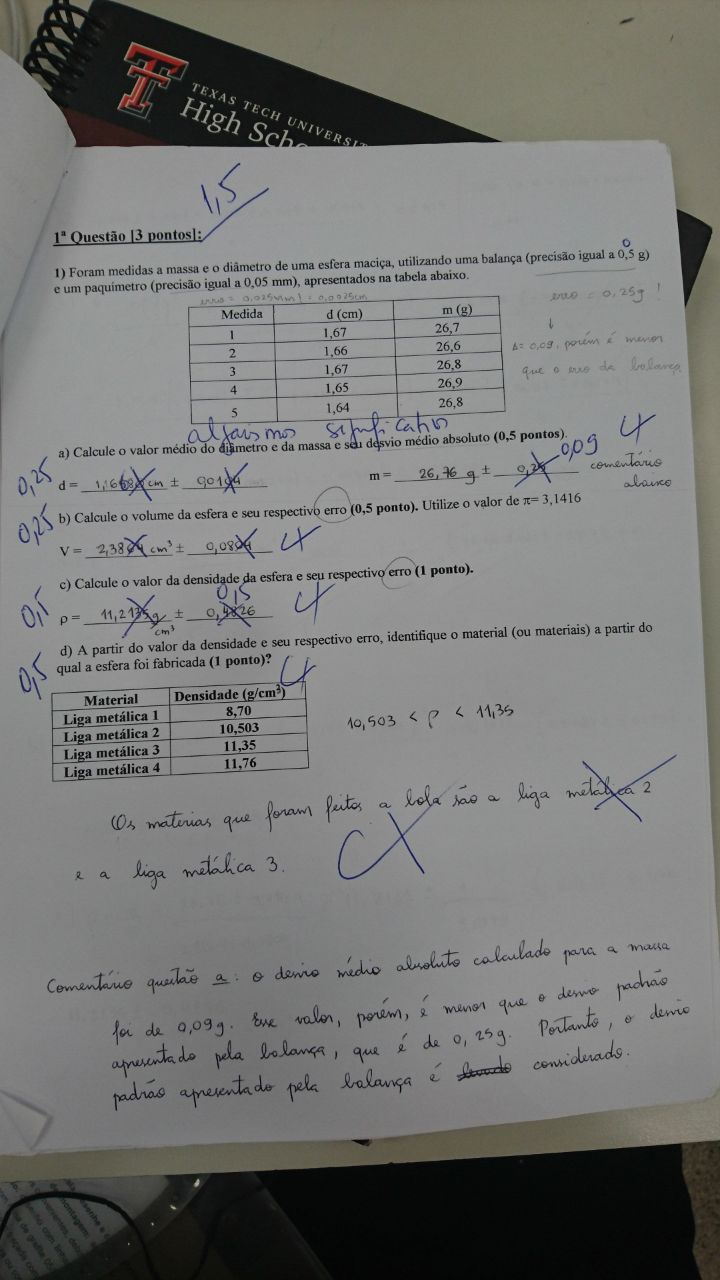 TEXAS TECH UNIVERSIT
High Scho
1,5
1ª Questão [3 pontos]:
0
1) Foram medidas a massa e o diâmetro de uma esfera maciça, utilizando uma balança (precisão igual a 0,5 g)
e um paquímetro (precisão igual a 0,05 mm), apresentados na tabela abaixo.
erro = 0,025mm = 0,0025cm
erro = 0,25g
Medida d (cm) m (g)
1 1,67 26,7
2 1,66 26,6
3 1,67 26,8
4 1,65 26,9
5 1,64 26,8
Δ= 0,09, porém é menor
que o erro da balança
algarismos significativos
a) Calcule o valor médio do diâmetro e da massa e seu desvio médio absoluto (0,5 pontos).
0,25
0,09g
d = cm ± m = 26,76 g ± 0,25
comentário
abaixo
0,25
b) Calcule o volume da esfera e seu respectivo erro (0,5 ponto). Utilize o valor de π= 3,1416
V = cm³ ±
c) Calcule o valor da densidade da esfera e seu respectivo erro (1 ponto).
0,5
0,15
ρ = g ± 0,4826
cm³
d) A partir do valor da densidade e seu respectivo erro, identifique o material (ou materiais) a partir do
qual a esfera foi fabricada (1 ponto)?
0,5
Material Densidade (g/cm³)
Liga metálica 1 8,70
Liga metálica 2 10,503
Liga metálica 3 11,35
Liga metálica 4 11,76
10,503 < ρ < 11,35
Os materias que foram feitos a bola são a liga metálica 2
e a liga metálica 3.
Comentário questão a: o desvio médio absoluto calculado para a massa
foi de 0,09g. Esse valor, porém, é menor que o desvio padrão
apresentado pela balança, que é de 0,25g. Portanto, o desvio
padrão apresentado pela balança é considerado.